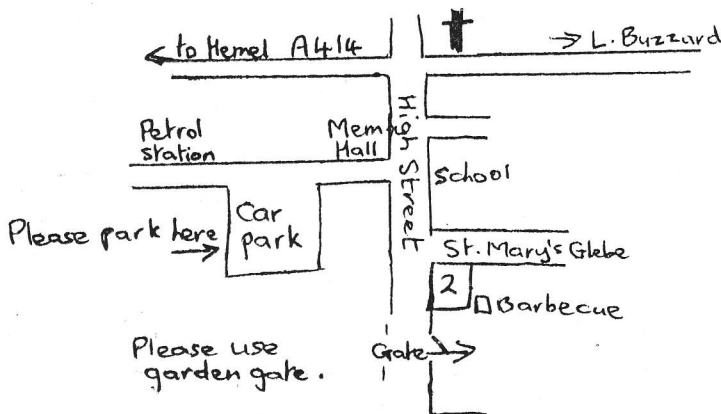 to Hemel A414
L. Buzzard
Petrol
station
Mem
Hall
High Street
School
Please park here
Car
park
St. Mary's Glebe
2
Barbecue
Please use
garden gate.
Gate